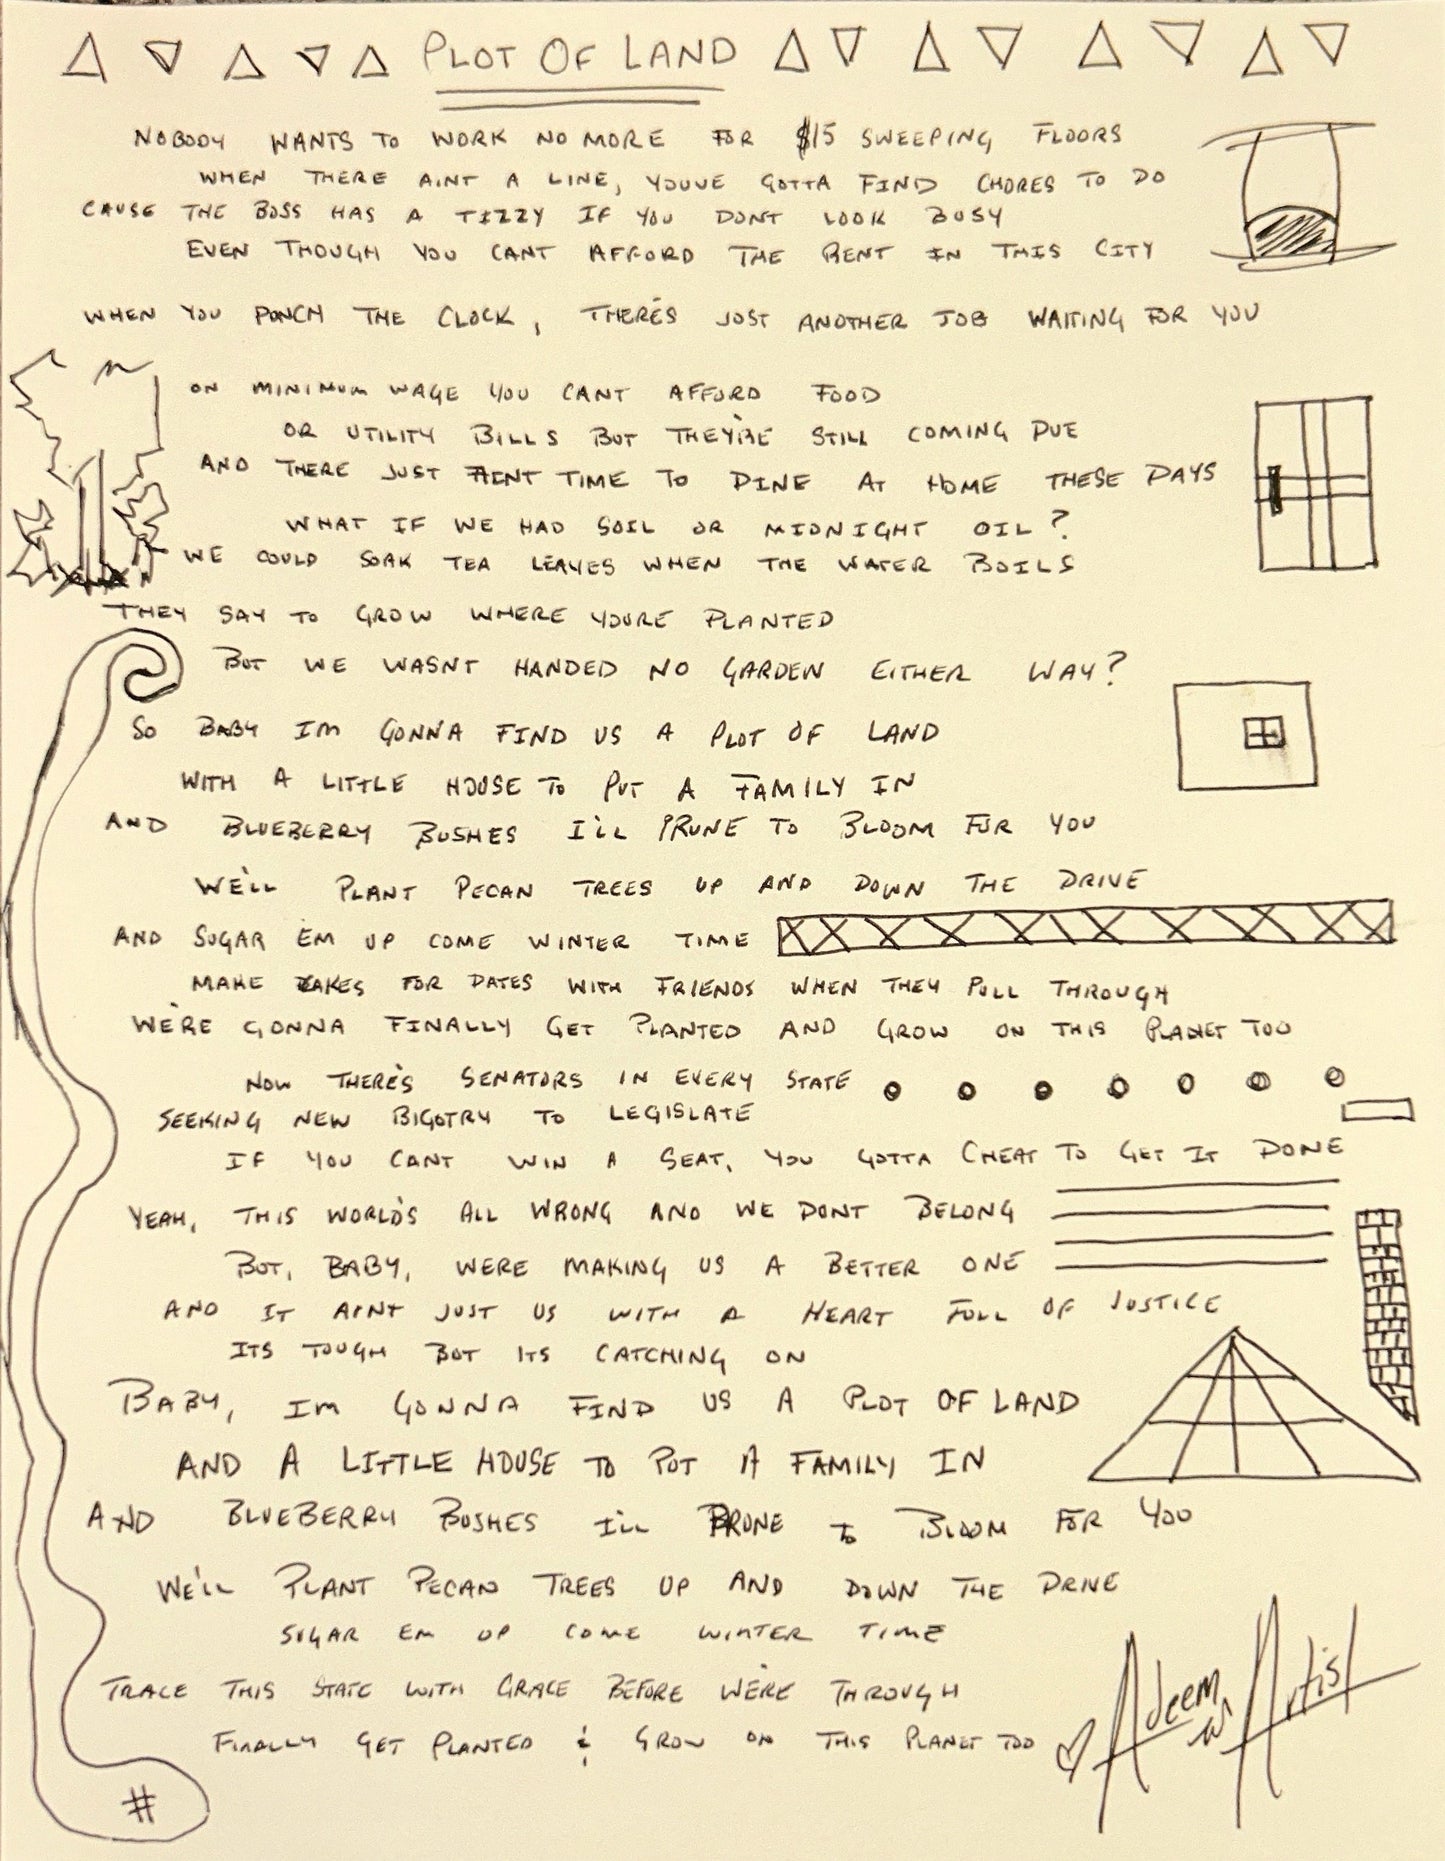 PLOT OF LAND
NOBODY WANTS TO WORK NO MORE FOR $15 SWEEPING FLOORS
WHEN THERE AINT A LINE, YOUVE GOTTA FIND CHORES TO DO
CAUSE THE BOSS HAS A TIZZY IF YOU DONT LOOK BUSY
EVEN THOUGH YOU CANT AFFORD THE RENT IN THIS CITY
WHEN YOU PUNCH THE CLOCK, THERE'S JUST ANOTHER JOB WAITING FOR YOU
ON MINIMUM WAGE YOU CANT AFFORD FOOD
OR UTILITY BILLS BUT THEY'RE STILL COMING DUE
AND THERE JUST AINT TIME TO DINE AT HOME THESE DAYS
WHAT IF WE HAD SOIL OR MIDNIGHT OIL?
WE COULD SOAK TEA LEAVES WHEN THE WATER BOILS
THEY SAY TO GROW WHERE YOURE PLANTED
BUT WE WASNT HANDED NO GARDEN EITHER WAY?
SO BABY IM GONNA FIND US A PLOT OF LAND
WITH A LITTLE HOUSE TO PUT A FAMILY IN
AND BLUEBERRY BUSHES I'LL PRUNE TO BLOOM FOR YOU
WE'LL PLANT PECAN TREES UP AND DOWN THE DRIVE
AND SUGAR EM UP COME WINTER TIME
MAKE CAKES FOR DATES WITH FRIENDS WHEN THEY PULL THROUGH
WE'RE GONNA FINALLY GET PLANTED AND GROW ON THIS PLANET TOO
NOW THERE'S SENATORS IN EVERY STATE
SEEKING NEW BIGOTRY TO LEGISLATE
IF YOU CANT WIN A SEAT, YOU GOTTA CHEAT TO GET IT DONE
YEAH, THIS WORLD'S ALL WRONG AND WE DONT BELONG
BUT, BABY, WERE MAKING US A BETTER ONE
AND IT AINT JUST US WITH A HEART FULL OF JUSTICE
ITS TOUGH BUT ITS CATCHING ON
BABY, IM GONNA FIND US A PLOT OF LAND
AND A LITTLE HOUSE TO PUT A FAMILY IN
AND BLUEBERRY BUSHES I'LL PRUNE TO BLOOM FOR YOU
WE'LL PLANT PECAN TREES UP AND DOWN THE DRIVE
SUGAR EM UP COME WINTER TIME
TRACE THIS STATE WITH GRACE BEFORE WE'RE THROUGH
FINALLY GET PLANTED & GROW ON THIS PLANET TOO
Adeem
Artist
#